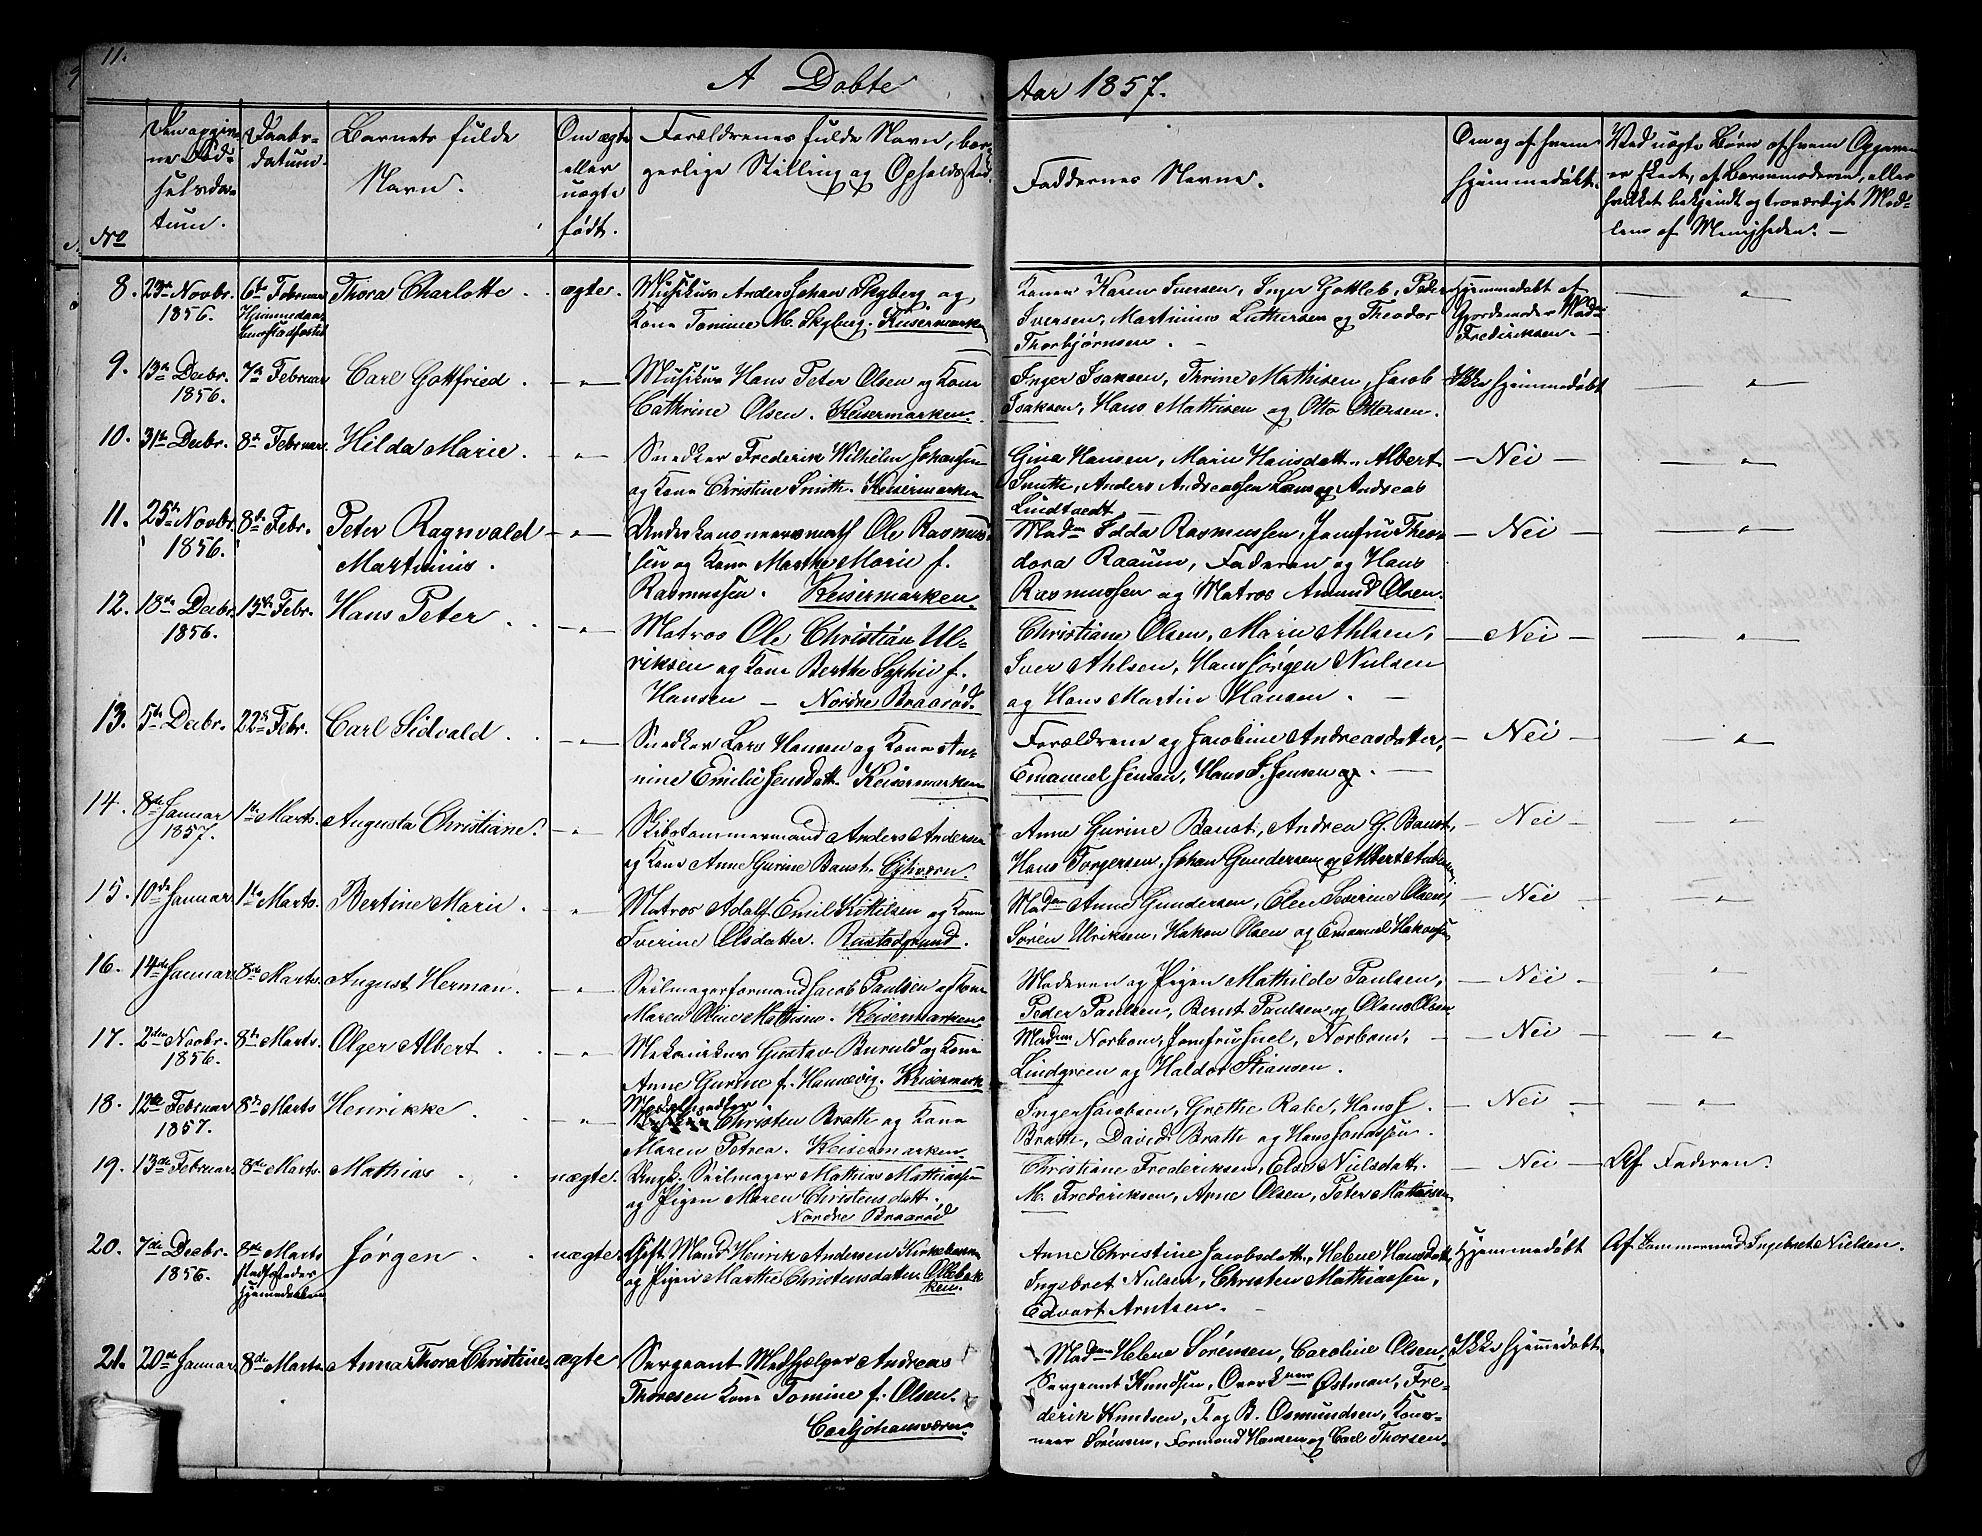 11.
A Døbte
Aar 1857.
No
Den opgivne Fødselsdatum.
Daabsdatum.
Barnets fulde Navn.
Om ægte eller uægte født.
Forældrenes fulde Navn, borgerlige Stilling og Opholdssted.
Faddernes Navne.
Om og af hvem hjemmedøbt.
Ved uægte Børn af hvem Opgaven er skeet, af Barnemoderen, eller hvilket bekjendt og troværdigt Medlem af Menigheden. —
8. 23de Novbr. 1856. 6te Februar Hjemmedaab Thora Charlotte. ægte. Musikus Anders Johan Skyberg og
Kone Tomine M. Skyberg. Keisermarken
Konen Karen Iversen, Inger Gottleb, Peder
Iversen, Martinius Luthersen og Theodor
Thorbjørnsen. —
Hjemmedøbt af
Gjordemoder Mad.
Frederiksen. —
9. 13de Decbr. 1856. 7de Februar Carl Gottfried. — " — Musikus Hans Peter Olsen og Kone
Cathrine Olsen. Keisermarken.
Inger Isaksen, Thrine Mathisen, Jacob
Isaksen, Hans Mathisen og Otto Ottersen.
Ikke hjemmedøbt
10. 31te Decbr. 8de Februar. Hilda Marie. — " — Snedker Frederik Wilhelm Johansen
og Kone Christine Smith. Keisermarken
Gina Hansen, Marie Hansdatt., Albert
Smith, Anders Andreassen og Andreas
Lindtvedt. —
— Nei —
11. 25de Novbr. 1856. 8de Febr. Peter Ragnvald
Martinius. — " — Underkanoneersmath Ole Rasmus-
sen og Kone Marthe Marie f.
Rasmussen. Keisermarken.
Madm Idda Rasmussen, Jomfru Theo-
dora Raaum, Faderen og Hans
Rasmussen og Matros Amund Olsen.
— Nei —
12. 18de Decbr. 1856. 15de Febr. Hans Peter. — " — Matros Ole Christian Ul-
riksen og Kone Berthe Sophie f.
Hansen — Nordre Braarød.
Christiane Olsen, Marie Ahlsen,
Iver Ahlsen, Hans Jørgen Nielsen
og Hans Martin Hansen. —
— Nei —
13. 5te Decbr. 22de Febr. Carl Sidvald. — " — Snedker Lars Hansen og Kone An-
nine Emilie Jensdatt. Keisermarken
Forældrene og Jacobine Andreasdatter,
Emanuel Jensen, Hans J. Jensen og. —
— Nei —
14. 8de Januar 1857. 1te Marts. Augusta Christiane. — " — Skibstømmermand Anders Andersen
og Kone Anne Gurine Baust.
Anne Gurine Baust, Andrea G. Baust,
Hans Torgersen, Johan Gundersen og Albert
— Nei —
15. 10de Januar 1te Marts. Bertine Marie. — " — Matros Adolf Emil Kittilsen og Kone
Tverine Olsdatter. Rustadgrund.
Madm Anne Gundersen, Elen Severine Olsen,
Søren Ulriksen, Hakon Olsen og Emanuel Hakonsen,
— Nei —
16. 14de Januar 8de Marts. August Herman. — " — Seilmagerformand Jacob Paulsen og Kone
Maren Oline Mathisen. Keisermarken
Moderen og Pigen Mathilde Paulsen,
Peder Paulsen, Bernt Paulsen og Olaus Olsen
— Nei —
17. 2den Novbr. 1856. 8de Marts. Olger Albert. — " — Mekanikus Gustav Buruld og Kone
Anne Gurine f. Hannevig. Keisermark
Madm Norbom, Jomfru Juel, Norbom,
Lindgreen og Haldor Stiansen.
— Nei —
18. 12te Februar 1857. 8de Marts Henrikke. — " — Modelsnedker
Christen Bratte og Kone
Maren Petrea. Keisermarken.
Inger Jacobsen, Grethe Rake, Hans J.
Bratte, David Bratte og Hans Jonassen.
— Nei —
19. 13de Februar. 8de Marts. Mathias. uægte. Ungk. Seilmager Mathias Mathiassen
og Pigen Maren Christensdatt.
Nordre Braarød
Christiane Frederiksen, Else Nielsdatt.
M. Frederiksen, Arne Olsen, Peter Mathisen
— Nei —
Af Faderen.
20. 7de Decbr. 1856. 8de Marts stadfæstedes Hjemmedaaben Jørgen. uægte. Gift Mand Henrik Andersen Kirkebakken
og Pigen Marthe Christensdatter Ollebak-
ken.
Anne Christine Jacobsdatt., Helene Hansdatt.
Ingebret Nielsen, Christen Mathiassen,
Edvart Arntsen. —
Hjemmedøbt
Af Tømmermand Ingebret Nielsen.
21. 20de Januar 8de Marts. Anna Thora Christine ægte Sergeant Medhjelper Andreas
Thoresen Kone Tomine f. Olsen.
Carljohansværn.
Madm Helene Sørensen, Caroline Olsen,
Sergeant Knudsen, Østman, Fre-
derik Knudsen, T. og B. Osmundsen, Kano-
neer Sørensen, Formand Hansen og Carl Thorsen.
Ikke hjemmedøbt.